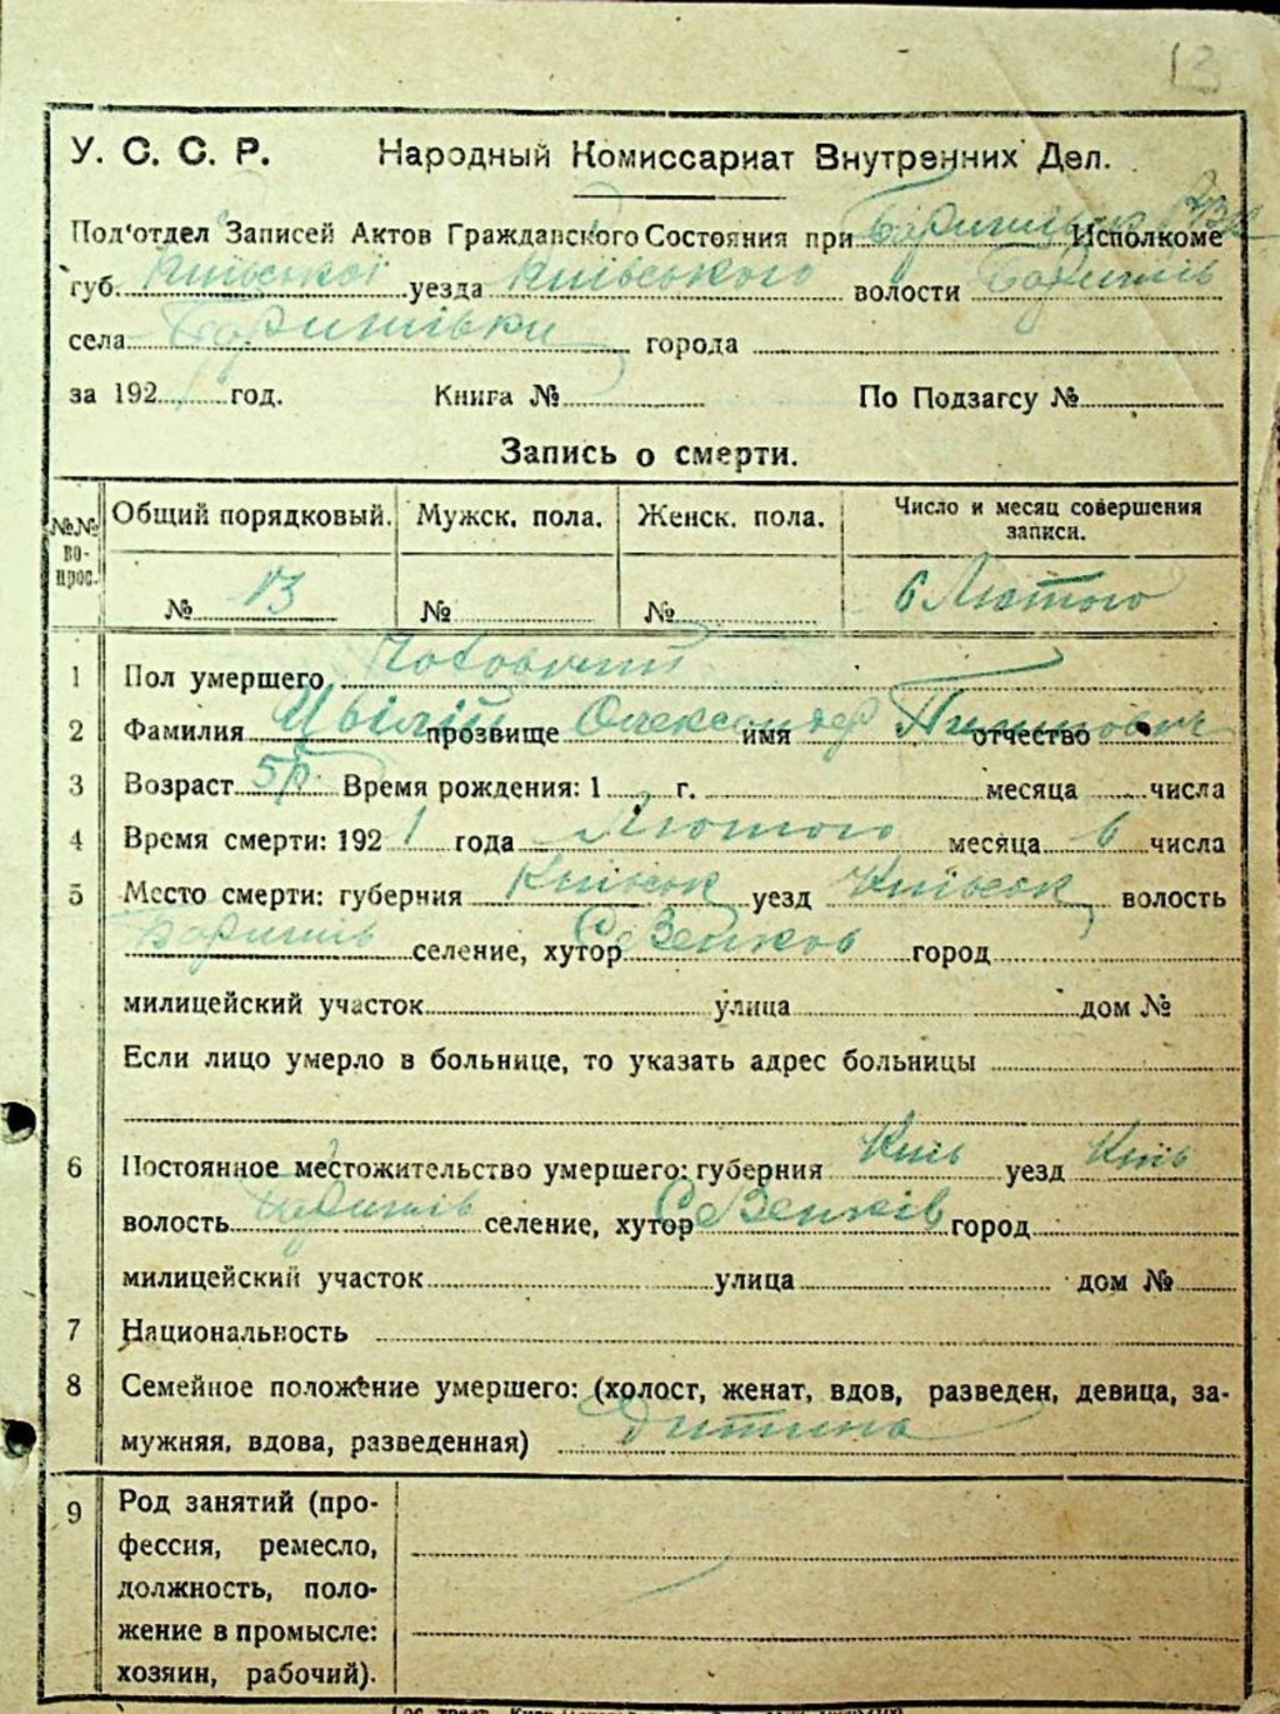 13
У. С. С. Р. Народный Комиссариат Внутренних Дел.
Под'отдел Записей Актов Гражданского Состояния при Исполкоме
губ. Київської уезда Київського волости Боришпіль
села города
за 192 год. Книга № По Подзагсу №
Запись о смерти.
№№ во-прос. Общий порядковый. Мужск. пола. Женск. пола. Число и месяц совершения записи.
№ 13 № № 6 Лютого
1 Пол умершего Чоловічий
2 Фамилия прозвище Олександер имя отчество
3 Возраст 5 р. Время рождения: 1 г. месяца числа
4 Время смерти: 192 1 года Лютого месяца 6 числа
5 Место смерти: губерния Київськ уезд Київськ волость
селение, хутор город
милицейский участок улица дом №
Если лицо умерло в больнице, то указать адрес больницы
6 Постоянное местожительство умершего: губерния Київ уезд Київ
волость селение, хутор город
милицейский участок улица дом №
7 Национальность
8 Семейное положение умершего: (холост, женат, вдов, разведен, девица, за-
мужняя, вдова, разведенная) Дитина
9 Род занятий (про-
фессия, ремесло,
должность, поло-
жение в промысле:
хозяин, рабочий).